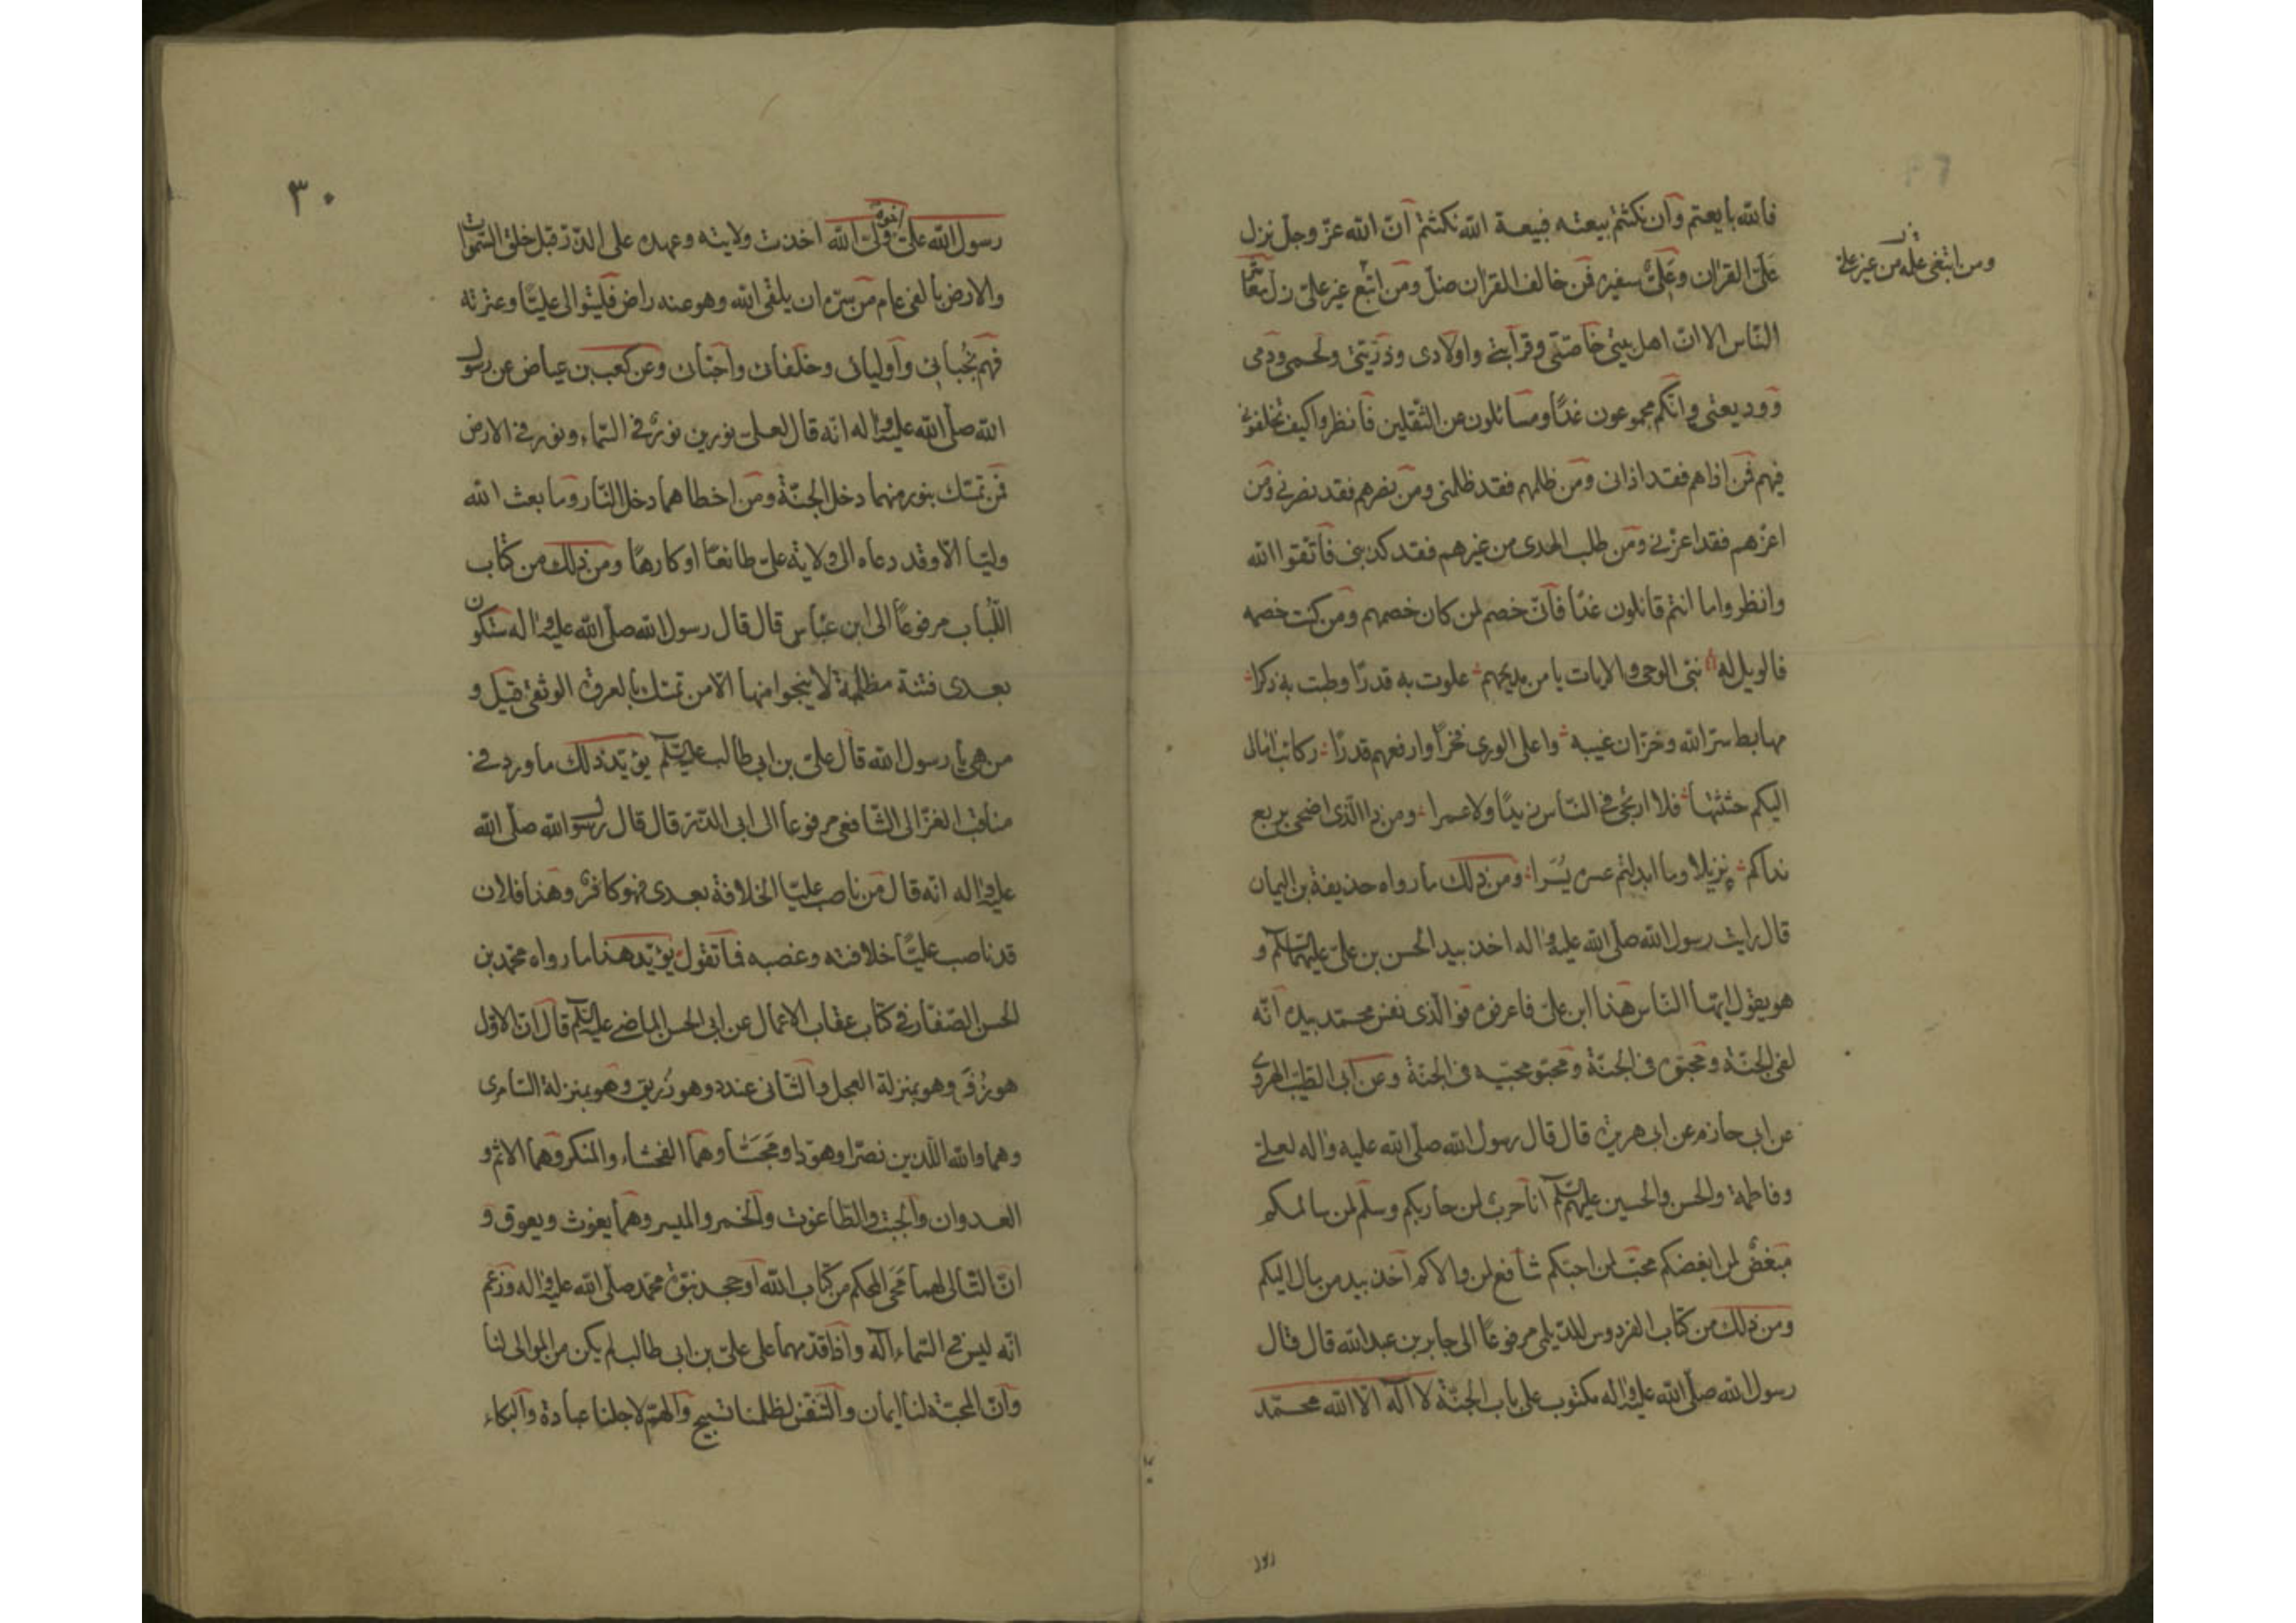 فالله بايعتم وان نكثتم بيعته فبيعة الله نكثتم ان الله عز وجل نزل
على القران وعلى سفيره فمن خالف القران ضل ومن اتبع غير علي زل معاشر
ومن ابتغى علمه من غير علي
الناس الا ان اهل بيتي خاصتي وقرابتي واولادى وذريتي ولحمى ودمى
وودیعتی وانكم مجموعون غدًا ومسائلون عن الثقلين فانظروا كيف تخلفوني
فيهم فمن اذاهم فقد اذانى ومن ظلمهم فقد ظلمنى ومن نصرهم فقد نصرنى ومن
اعزهم فقد اعزنى ومن طلب الهدى من غيرهم فقد كذبنى فاتقوا الله
وانظروا ما انتم قائلون غدًا فانى خصم لمن كان خصمهم ومن كنت خصمه
فالويل له بنى الوحى والايات يا من مديحهم علوت به قدرًا وطبت به ذكرا
مهابط سر الله وخزان غيبه واعلى الورى فخرًا وارفعهم قدرًا ركائب امال
اليكم حثثتها فلا ارتجى فى الناس زيدًا ولا عمرا ومن ذا الذى اضحى بربع
نداكم نزيلا وما ابدلتم عسره يسرا ومن ذلك ما رواه حذيفة بن اليمان
قال رايت رسول الله صلى الله عليه واله اخذ بيد الحسن بن على عليهما السلام و
هو يقول ايها الناس هذا ابن على فاعرفوه فوالذى نفس محمد بيده انه
لفى الجنة ومحبوه فى الجنة ومحبو محبيه فى الجنة وعن ابى الطيب الهروى
عن ابى حازم عن ابى هريرة قال قال رسول الله صلى الله عليه واله لعلى
وفاطمة والحسن والحسين عليهم السلم انا حرب لمن حاربكم وسلم لمن سالمكم
مبغض لمن ابغضكم محب لمن احبكم شافع لمن والاكم اخذ بيد من مال اليكم
ومن ذلك من كتاب الفردوس للديلمى مرفوعًا الى جابر بن عبد الله قال قال
رسول الله صلى الله عليه واله مكتوب على باب الجنة لا اله الا الله محمد
٣٠
رسول الله على ولى الله اخوه اخذت ولايته وعهده على الذر قبل خلق السموات
والارض بالفى عام من سره ان يلقى الله وهو عنه راض فليتوالى عليًا وعترته
فهم نجبائى واوليائى وخلفائى واحبائى وعن كعب بن عياض عن رسول
الله صلى الله عليه واله انه قال لعلى نورين نور فى السماء ونور فى الارض
فمن تمسك بنور منهما دخل الجنة ومن اخطاهما دخل النار وما بعث الله
وليا الا وقد دعاه الى ولاية على طائعًا او كارهًا ومن ذلك من كتاب
اللباب مرفوعًا الى ابن عباس قال قال رسول الله صلى الله عليه واله ستكون
بعدى فتنة مظلمة لا ينجوا منها الا من تمسك بالعروة الوثقى قيل و
من هى يا رسول الله قال على بن ابى طالب عليه السلم يؤيد ذلك ما ورد فى
مناقب الغزالى الشافعى مرفوعا الى ابى الذر قال قال رسول الله صلى الله
عليه واله انه قال من ناصب عليا الخلافة بعدى فهو كافر وهذا فلان
قد ناصب عليًا خلافته وغصبه فما تقول يؤيد هذا ما رواه محمد بن
الحسن الصفار فى كتاب عقاب الاعمال عن ابى الحسن الماضى عليه السلم قال ان الاول
هو زفر وهو بمنزلة العجل والثانى عندد وهو زريق وهو بمنزلة السامرى
وهما والله اللذين نصرا وهودا ومجسا وهما الفحشاء والمنكر وهما الاثم و
العدوان والجبت والطاغوت والخمر والميسر وهما يغوث ويعوق و
ان التالى لهما محى المحكم من كتاب الله او جحد نبوة محمد صلى الله عليه واله وزعم
انه ليس فى السماء اله واذا قدمهما على على بن ابى طالب لم يكن من الموالى لنا
وان المحبة لنا ايمان والتنفس لظلمنا تسبيح والهم لاجلنا عبادة والبكاء